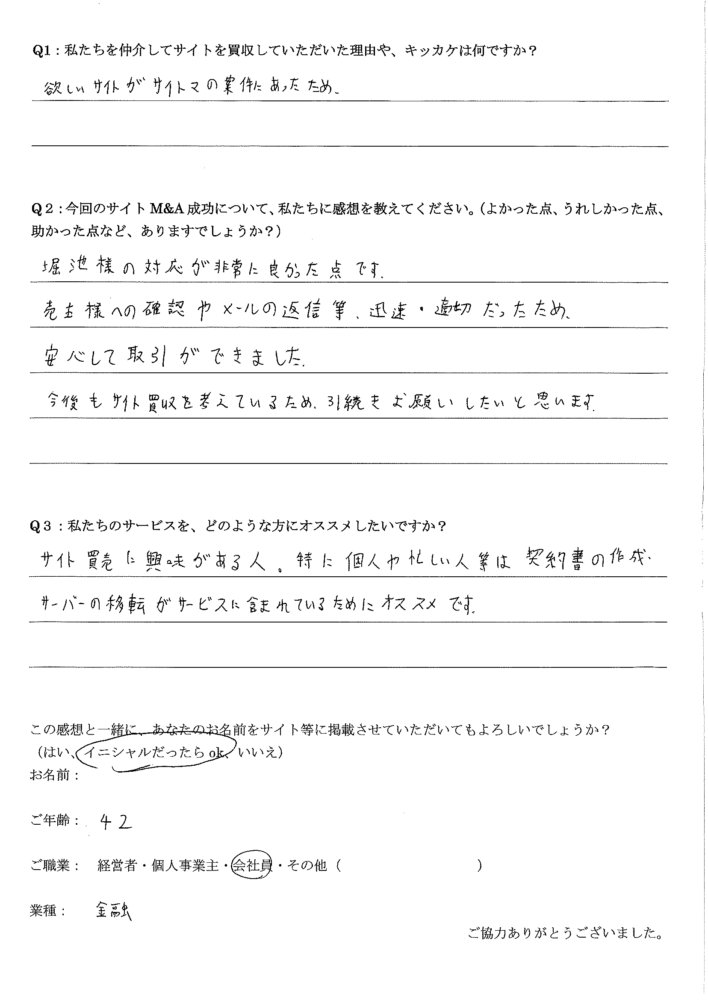 Q1：私たちを仲介してサイトを買収していただいた理由や、キッカケは何ですか？
欲しいサイトがサイトマの案件にあったため.
Q２：今回のサイト M&A 成功について、私たちに感想を教えてください。（よかった点、うれしかった点、
助かった点など、ありますでしょうか？）
堀池様の対応が非常に良かった点です.
売主様への確認やメールの返信等、迅速・適切だったため、
安心して取引ができました.
今後もサイト買収を考えているため、引続きお願いしたいと思います.
Q３：私たちのサービスを、どのような方にオススメしたいですか？
サイト買売に興味がある人。特に個人や忙しい人等は契約書の作成・
サーバーの移転がサービスに含まれているためにオススメです.
この感想と一緒に、あなたのお名前をサイト等に掲載させていただいてもよろしいでしょうか？
（はい、イニシャルだったら ok、いいえ）
お名前：
ご年齢： 42
ご職業： 経営者・個人事業主・会社員・その他（ ）
業種： 金融
ご協力ありがとうございました。